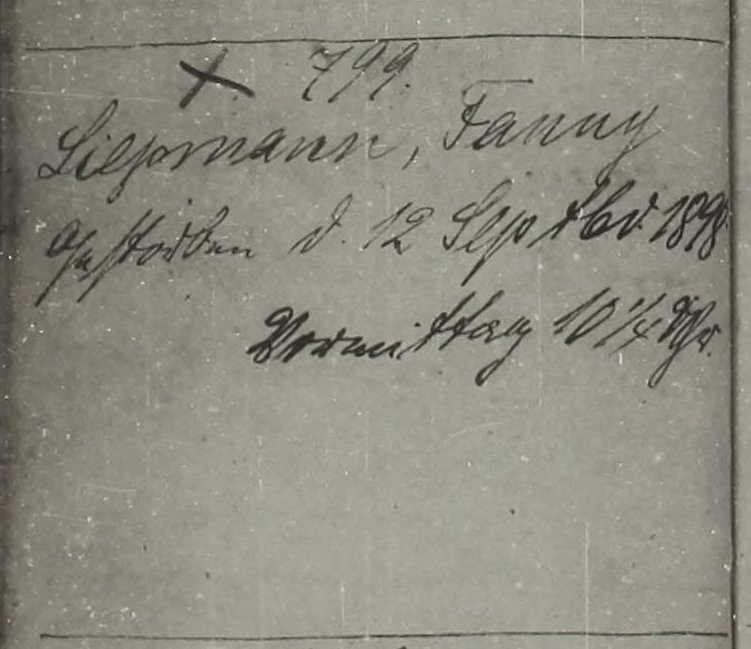 X. 799.
Liepmann, Fanny
Gestorben d. 12 Septbr. 1898
Vormittag 10 1/4 Uhr.